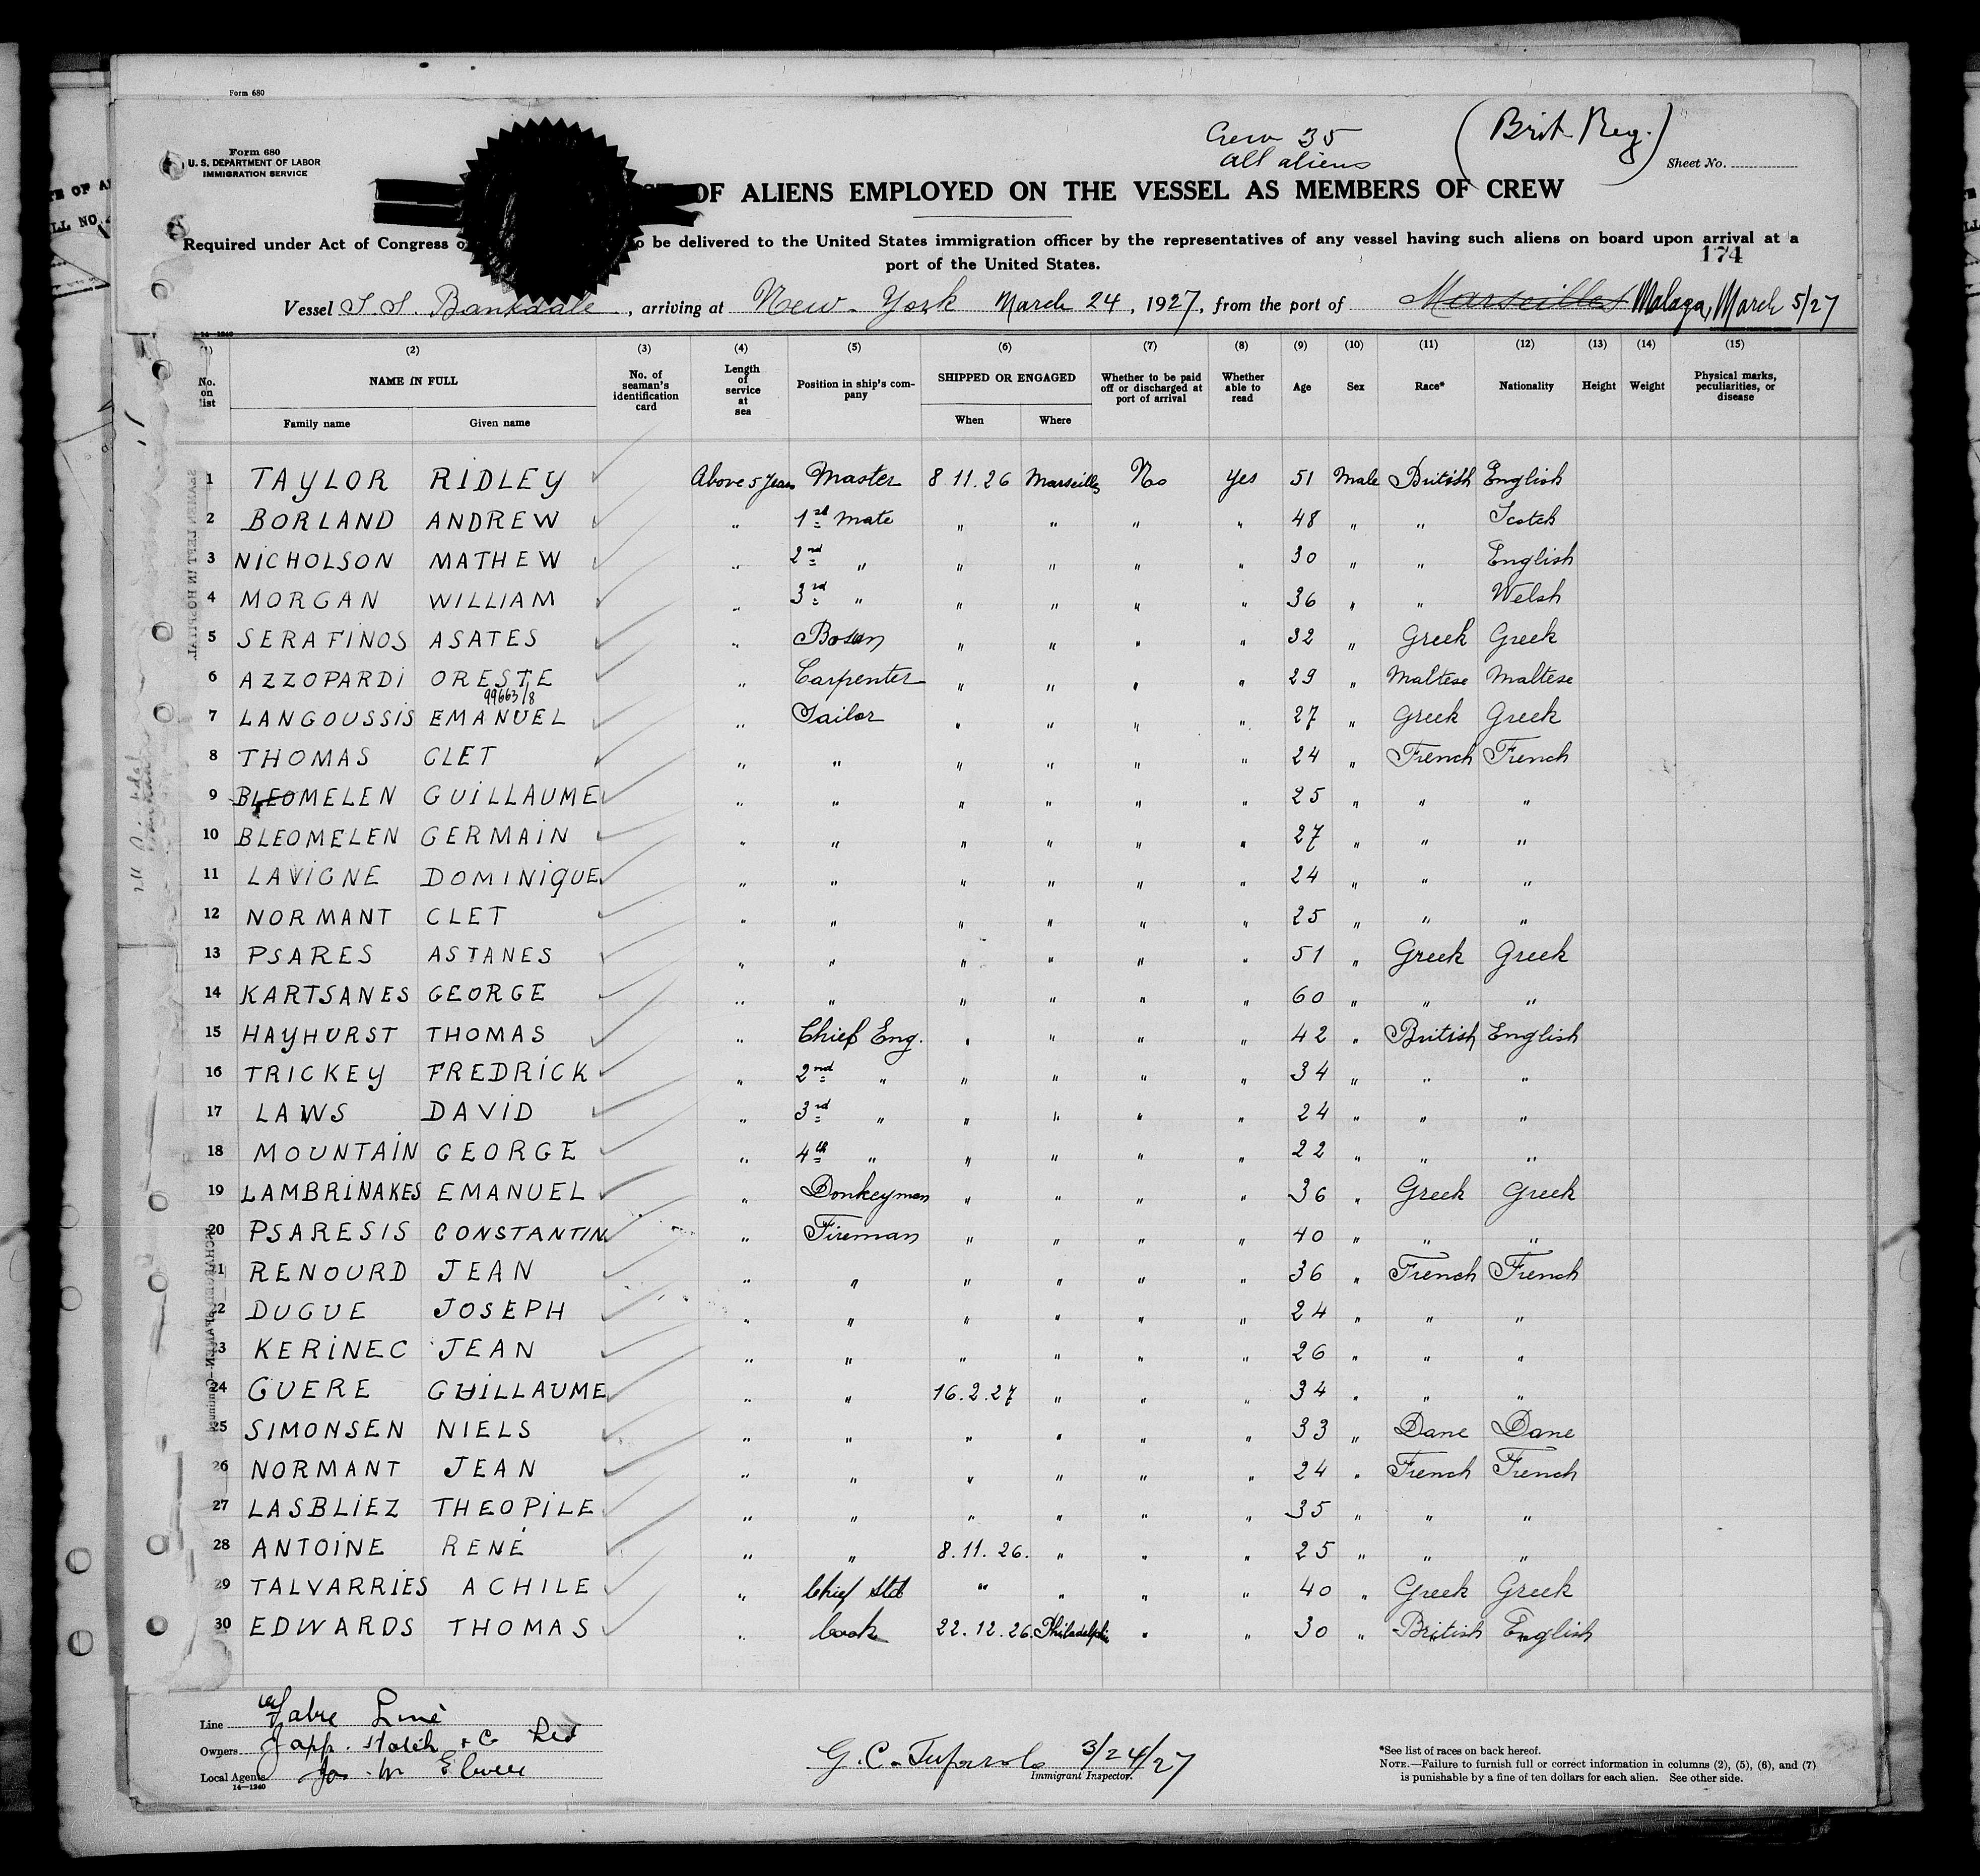 Form 680
Crew 35
All aliens
(Brit Reg.)
Form 680
U. S. DEPARTMENT OF LABOR
IMMIGRATION SERVICE
Sheet No.
OF ALIENS EMPLOYED ON THE VESSEL AS MEMBERS OF CREW
Required under Act of Congress o be delivered to the United States immigration officer by the representatives of any vessel having such aliens on board upon arrival at a
port of the United States.
174
Vessel S.S. Bankdale, arriving at New York March 24, 1927, from the port of Marseilles Malaga, March 5/27
14—1240
(1) (2) (3) (4) (5) (6) (7) (8) (9) (10) (11) (12) (13) (14) (15)
No. on list NAME IN FULL No. of seaman's identification card Length of service at sea Position in ship's company SHIPPED OR ENGAGED Whether to be paid off or discharged at port of arrival Whether able to read Age Sex Race* Nationality Height Weight Physical marks, peculiarities, or disease
Family name Given name When Where
1 TAYLOR RIDLEY Above 5 Years Master 8.11.26 Marseilles No Yes 51 Male British English
2 BORLAND ANDREW " 1st Mate " " " " 48 " " Scotch
3 NICHOLSON MATHEW " 2nd " " " " " 30 " " English
4 MORGAN WILLIAM " 3rd " " " " " 36 " " Welsh
5 SERAFINOS ASATES " Bosun " " " " 32 " Greek Greek
6 AZZOPARDI ORESTE " Carpenter " " " " 29 " Maltese Maltese
99663/8
7 LANGOUSSIS EMANUEL " Sailor " " " " 27 " Greek Greek
8 THOMAS CLET " " " " " " 24 " French French
9 BLEOMELEN GUILLAUME " " " " " " 25 " " "
10 BLEOMELEN GERMAIN " " " " " " 27 " " "
11 LAVIGNE DOMINIQUE " " " " " " 24 " " "
12 NORMANT CLET " " " " " " 25 " " "
13 PSARES ASTANES " " " " " " 51 " Greek Greek
14 KARTSANES GEORGE " " " " " " 60 " " "
15 HAYHURST THOMAS " Chief Eng. " " " " 42 " British English
16 TRICKEY FREDRICK " 2nd " " " " " 34 " " "
17 LAWS DAVID " 3rd " " " " " 24 " " "
18 MOUNTAIN GEORGE " 4th " " " " " 22 " " "
19 LAMBRINAKES EMANUEL " Donkeyman " " " " 36 " Greek Greek
20 PSARESIS CONSTANTIN " Fireman " " " " 40 " " "
21 RENOURD JEAN " " " " " " 36 " French French
22 DUGUE JOSEPH " " " " " " 24 " " "
23 KERINEC JEAN " " " " " " 26 " " "
24 GUERE GUILLAUME " " 16.2.27 " " " 34 " " "
25 SIMONSEN NIELS " " " " " " 33 " Dane Dane
26 NORMANT JEAN " " " " " " 24 " French French
27 LASBLIEZ THEOPILE " " " " " " 35 " " "
28 ANTOINE RENÉ " " 8.11.26. " " " 25 " " "
29 TALVARRIES ACHILE " Chief Std " " " " 40 " Greek Greek
30 EDWARDS THOMAS " Cook 22.12.26. Philadelphi " " 30 " British English
Line Fabre Line
Owners Japp. Hatch & Co Ltd
Local Agents Jas. W. Elwell
14—1240
3/24/27
Immigrant Inspector.
*See list of races on back hereof.
NOTE.—Failure to furnish full or correct information in columns (2), (5), (6), and (7)
is punishable by a fine of ten dollars for each alien. See other side.